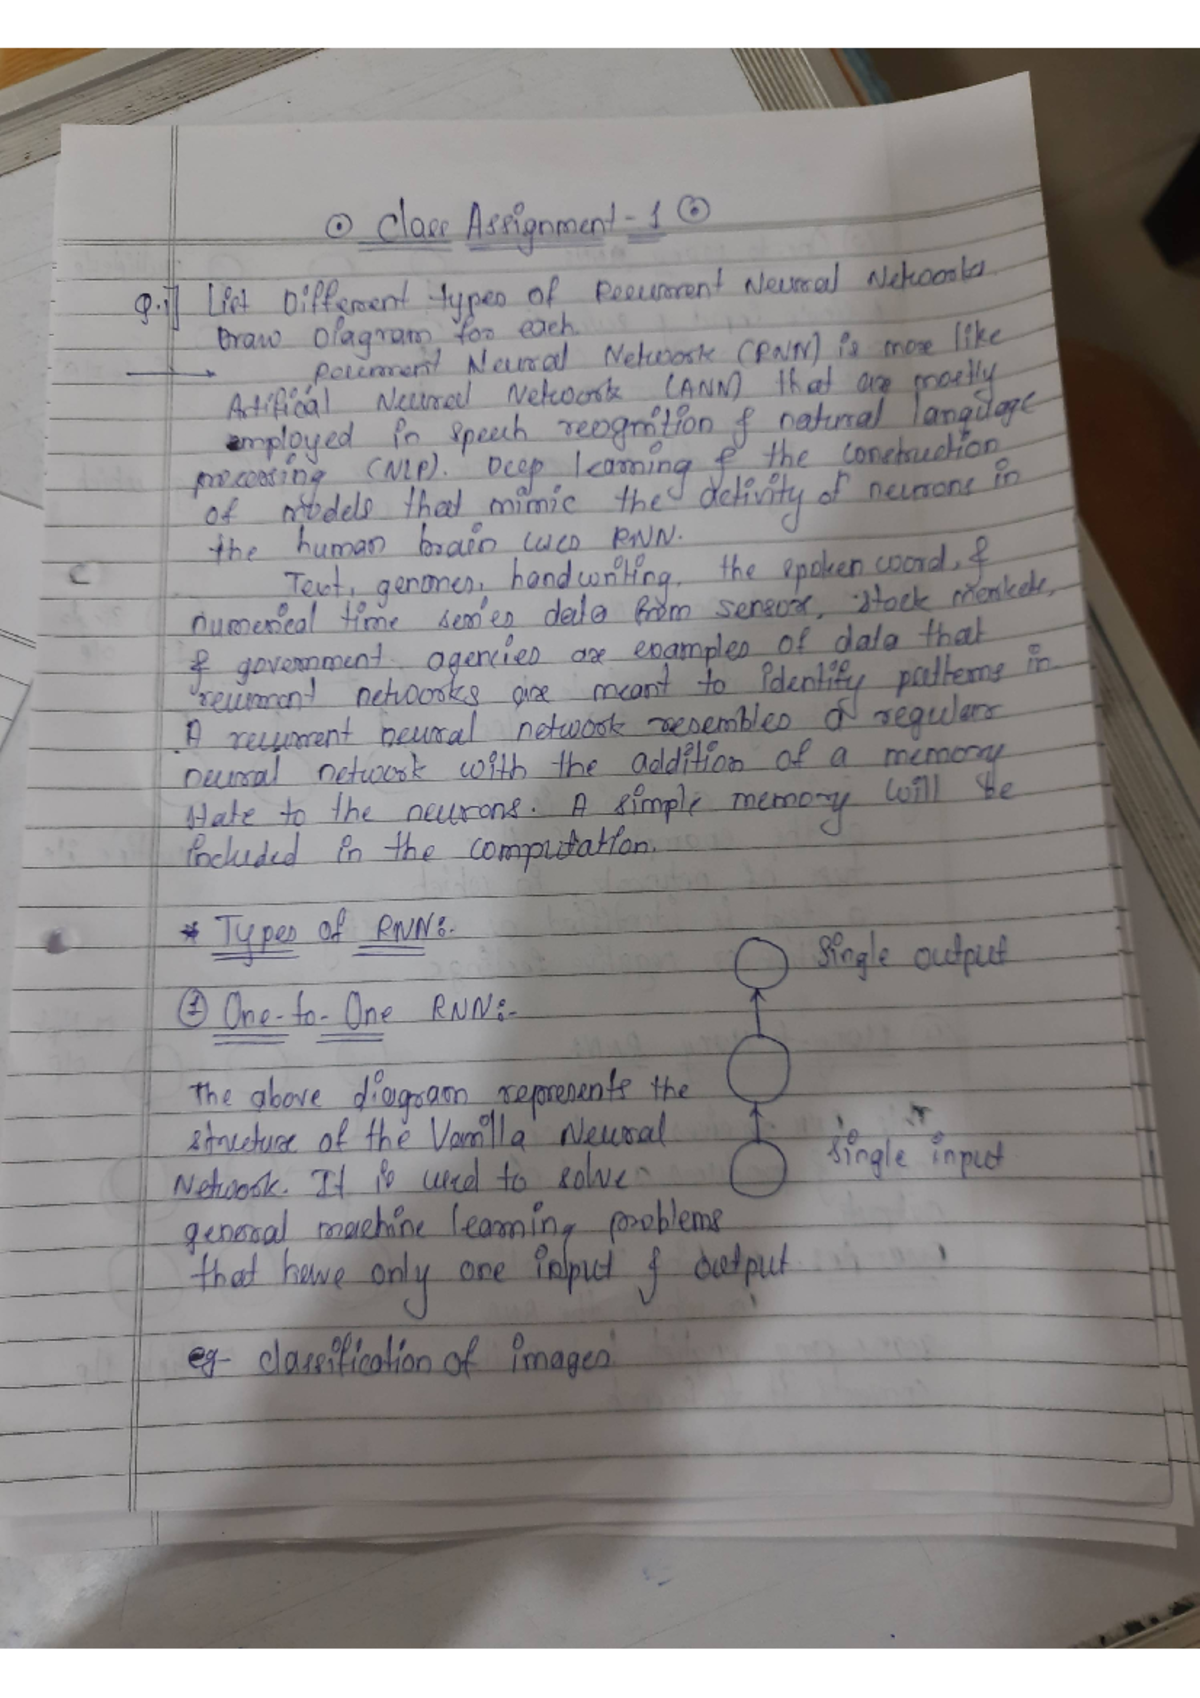 Class Assignment - 1
Q.1] List Different types of Recurrent Neural Networks.
Draw Diagram for each
Recurrent Neural Network (RNN) is more like
Artifical Neural Network (ANN) that are mostly
employed in speech recognition & natural language
processing (NLP). Deep learning & the construction
of models that mimic the activity of neurons in
the human brain uses RNN.
Text, genomes, handwriting, the spoken word, &
numerical time series data from sensor, stock markets,
& government agencies are examples of data that
recurrent networks are meant to identify patterns in
A recurrent neural network resembles a regular
neural network with the addition of a memory
state to the neurons. A simple memory will be
included in the computation.
* Types of RNN:-
① One-to-One RNN:-
Single output
The above diagram represents the
structure of the Vanilla Neural
Single input
Network. It is used to solve
general machine learning problems
that have only one input & output
eg- classification of images